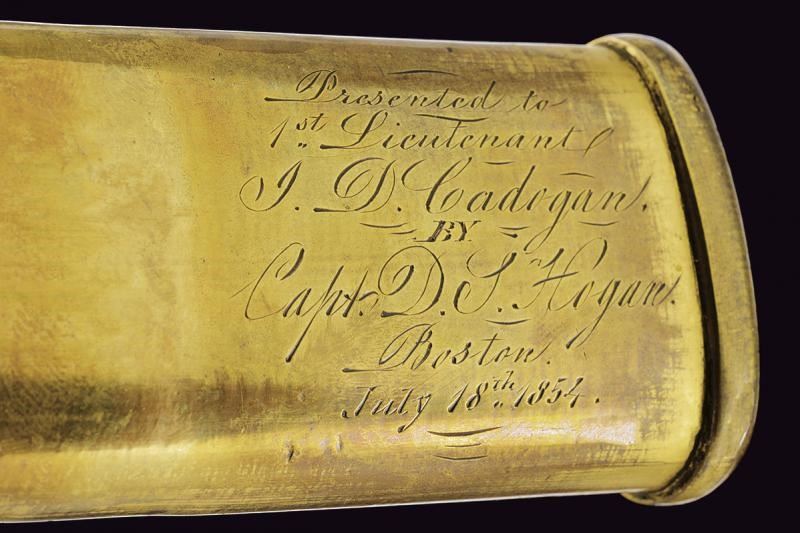 Presented to
1st Lieutenant
J. D. Cadogan.
BY
Capt. D. S. Hogan.
Boston.
July 18th 1854.